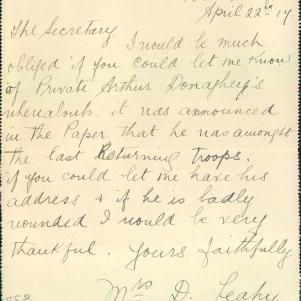 April 22nd 17.
The Secretary I would be much
obliged if you could let me know
of Private Arthur Donaghey's
whereabouts. it was announced
in the Paper that he was amongst
the last Returning troops.
if you could let me have his
address & if he is badly
wounded I would be very
thankful. Yours faithfully
Mrs D. Leahy